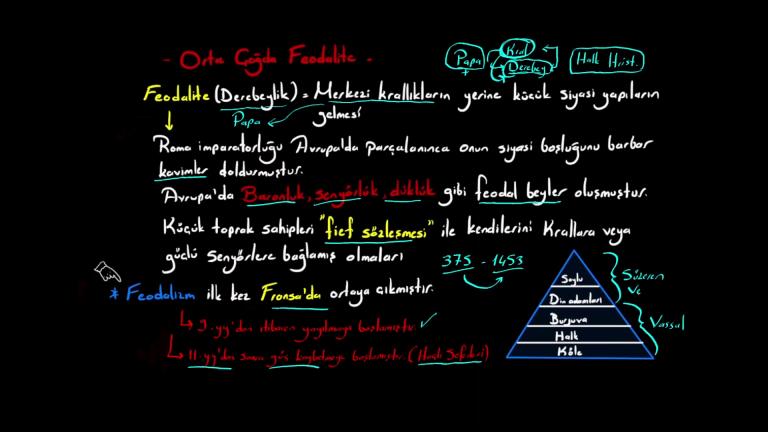 - Orta Çağda Feodalite -
Papa
Kral
Derebey
Halk Hrist.
Feodalite (Derebeylik) = Merkezi krallıkların yerine küçük siyasi yapıların
Papa
gelmesi
Roma imparatorluğu Avrupa'da parçalanınca onun siyasi boşluğunu barbar
kavimler doldurmuştur.
Avrupa'da Baronluk, senyörlük, düklük gibi feodal beyler oluşmuştur.
Küçük toprak sahipleri "fief sözleşmesi" ile kendilerini Krallara veya
güçlü senyörlere bağlamış olmaları
375 - 1453
* Feodalizm ilk kez Fransa'da ortaya çıkmıştır.
9.yy'dan itibaren yayılmaya başlamıştır.
11.yy'dan sonra güç kaybetmeye başlamıştır. (Haçlı Seferleri)
Soylu
Din adamları
Burjuva
Halk
Köle
Süzeren
ve
Vassal